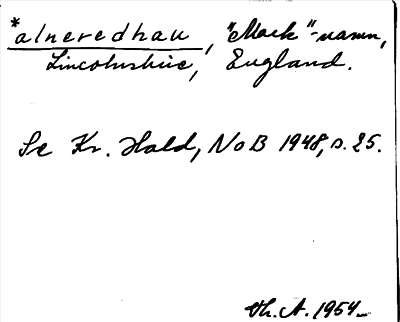 *alneredhau, "Mark"-namn,
Lincolnshire, England.
Se Kr. Hald, NoB 1948, s. 25.
Th. A. 1954